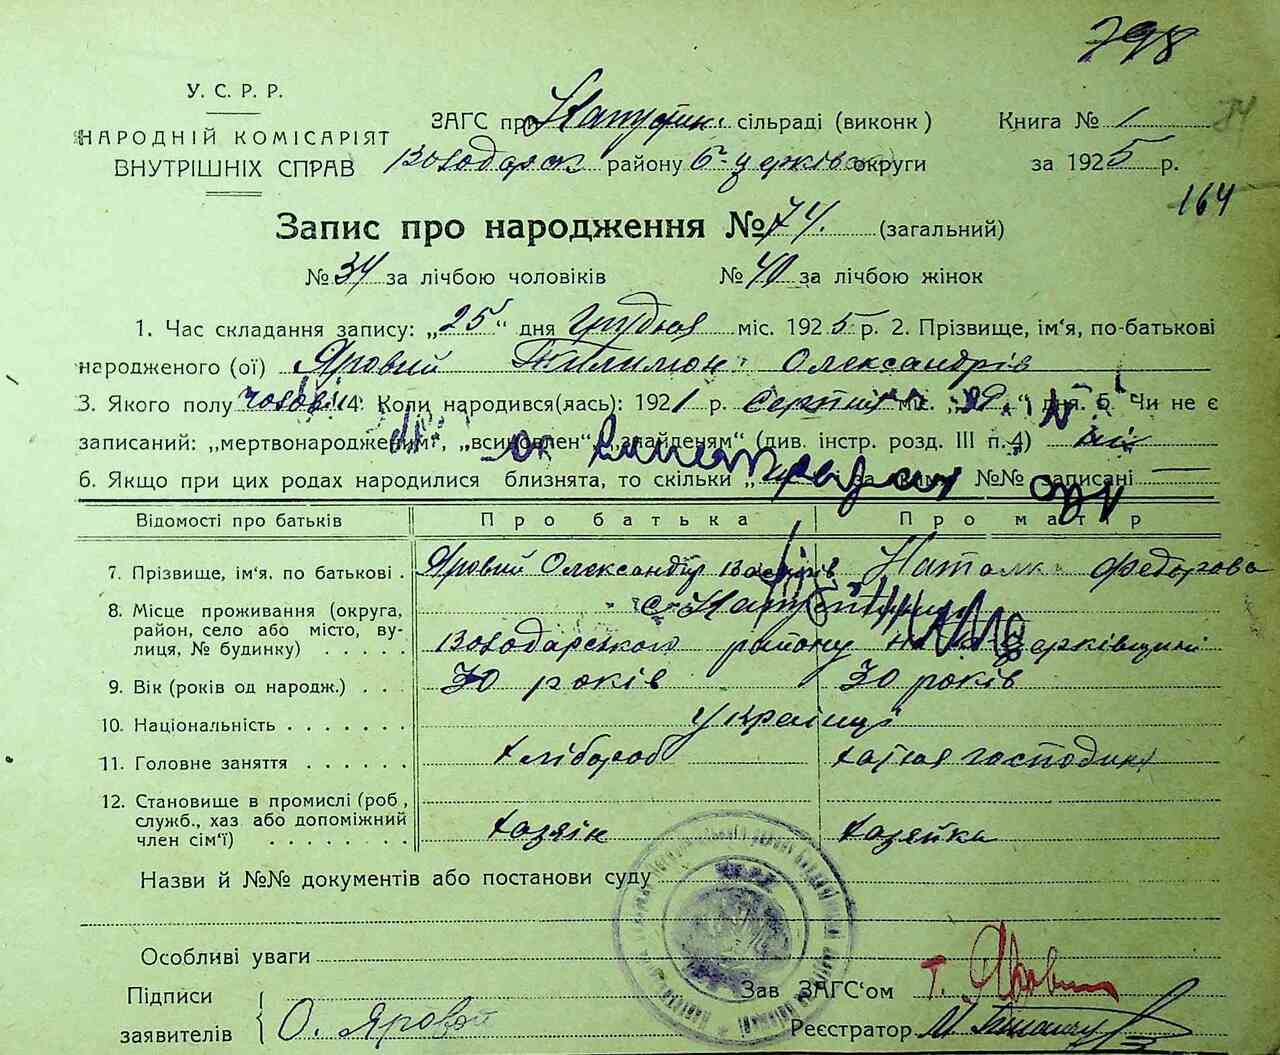 798
У. С. Р. Р.
НАРОДНІЙ КОМІСАРІЯТ
ВНУТРІШНІХ СПРАВ
ЗАГС при сільраді (виконк) Книга № 1
Володарськ району Б-церків округи за 1925 р.
74
164
Запис про народження № 74. (загальний)
№ 34 за лічбою чоловіків № 40 за лічбою жінок
1. Час складання запису: „25" дня Грудня міс. 1925 р. 2. Прізвище, ім'я, по-батькові
народженого (ої) Яровий Тилимон Олександрів
3. Якого полу чоловічі 4. Коли народився(лась): 1921 р. Серпня міс. „29" дня. 5. Чи не є
записаний: „мертвонароджений", „всиновлен" „знайденям" (див. інстр. розд. III п. 4) ні
6. Якщо при цих родах народилися близнята, то скільки „ за №№ записані
Відомості про батьків Про батька Про матір
7. Прізвище, ім'я, по батькові Яровий Олександр Наталя Федорова
8. Місце проживання (округа, с.
район, село або місто, ву-
лиця, № будинку) Володарського району на Б Церківщині
9. Вік (років од народж.) 30 років 30 років
10. Національність Українці
11. Головне заняття хлібороб хатня господиня
12. Становище в промислі (роб,
служб., хаз або допоміжний
член сім'ї) хазяін хазяйка
Назви й №№ документів або постанови суду
Особливі уваги
Підписи Зав ЗАГС'ом Т. Яровий
заявителів О. Яровой Реєстратор